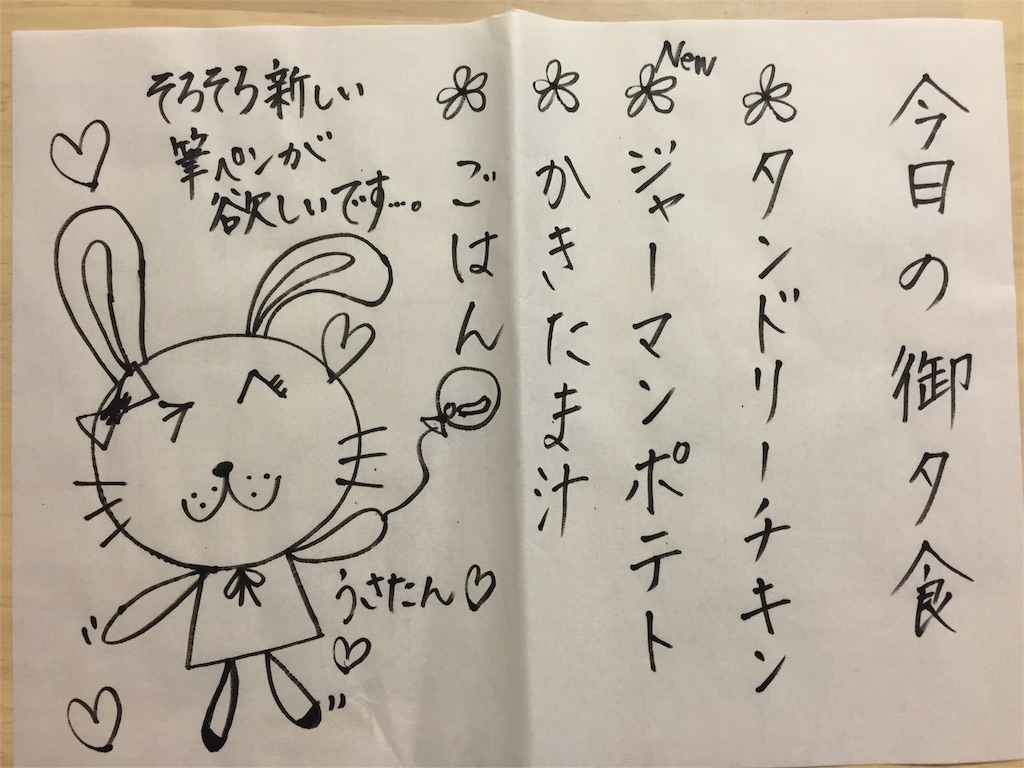 今日の御夕食
タンドリーチキン
New
ジャーマンポテト
かきたま汁
ごはん
そろそろ新しい
筆ペンが
欲しいです…。
うさたん♡